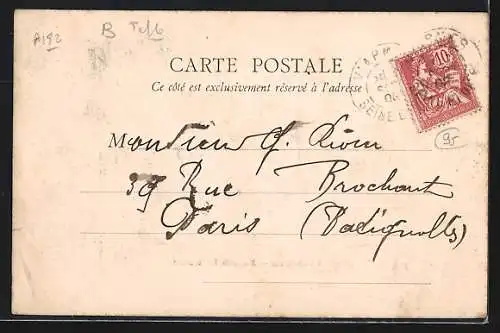 A192 B
CARTE POSTALE
Ce côté est exclusivement réservé à l'adresse
10
Monsieur G.
39 Rue Brochant
Paris (Batignolles)